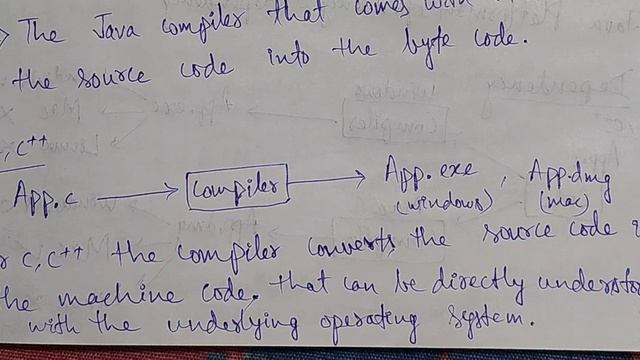 > The Java compiler that comes with
the source code into the byte code.
, C++
App.c → Compiler → App.exe , App.dmg
(windows) (mac)
r C, C++ the compiler converts the source code
the machine code. that can be directly understo
with the underlying operating system.